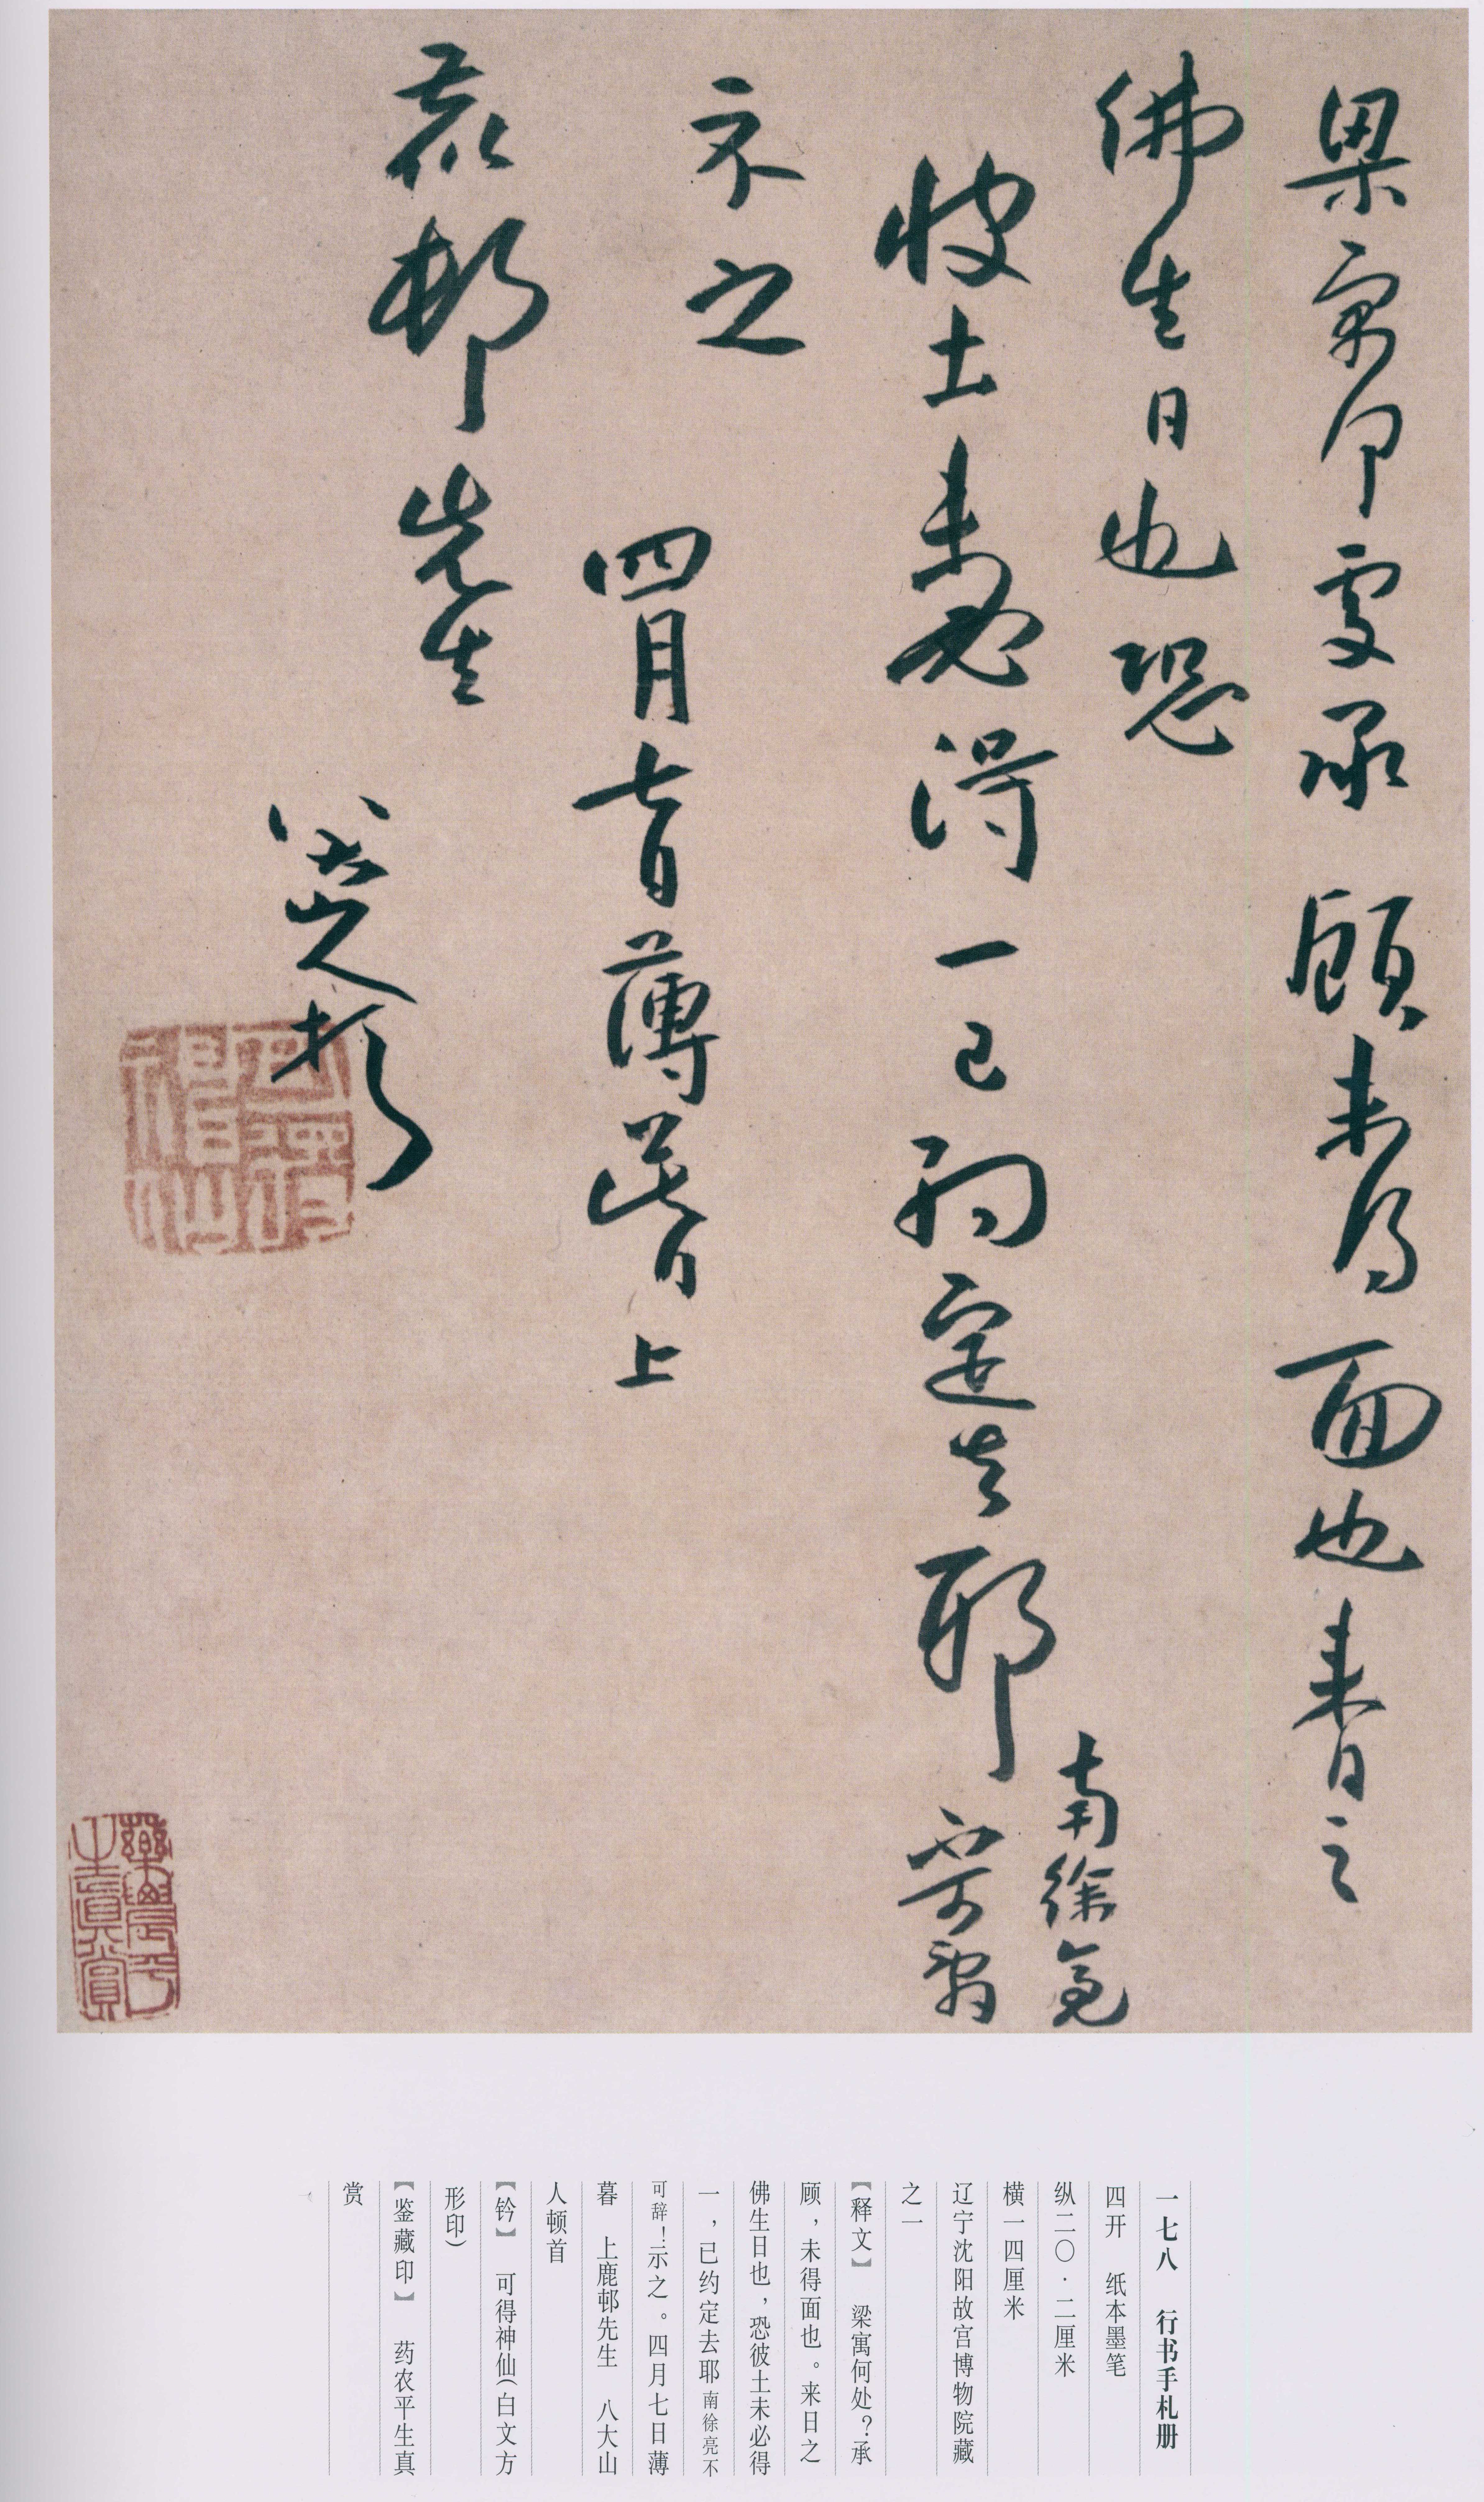 梁寓何處承顧未得面也來日之
佛生日也恐
彼土未必得一已約定去耶
南徐亮
不可辭
示之
四月七日薄暮上
鹿邨先生
八大山人頓首
可得神仙
藥農平生真賞
一七八 行书手札册
四开 纸本墨笔
纵二〇·二厘米
横一四厘米
辽宁沈阳故宫博物院藏
之一
【释文】 梁寓何处？承
顾，未得面也。来日之
佛生日也，恐彼土未必得
一，已约定去耶南徐亮不
可辞！示之。四月七日薄
暮 上鹿邨先生 八大山
人顿首
【钤】 可得神仙（白文方
形印）
【鉴藏印】 药农平生真
赏